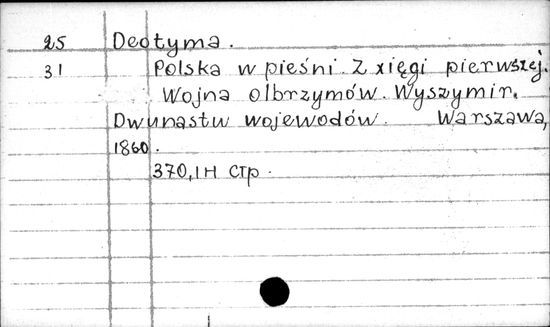 25 Deotyma.
31 Polska w pieśni. Z xięgi pierwszej.
Wojna olbrzymów. Wyszymir.
Dwunastu wojewodów. Warszawa,
1860.
370, IH стр.